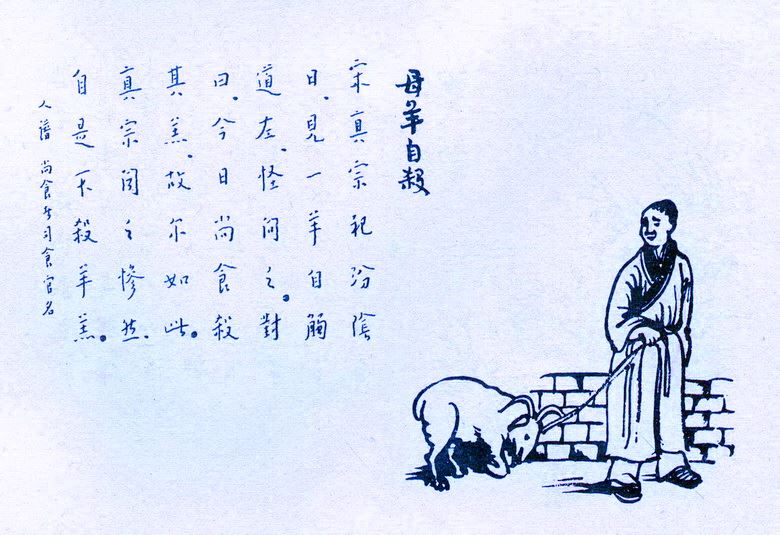 母羊自殺
宋真宗祀汾陰
日、見一羊自觸
道左、怪問之。對
曰、今日尚食殺
其羔、故尔如此。
真宗聞之慘然、
自是不殺羊羔。
人譜 尚食 司食官名